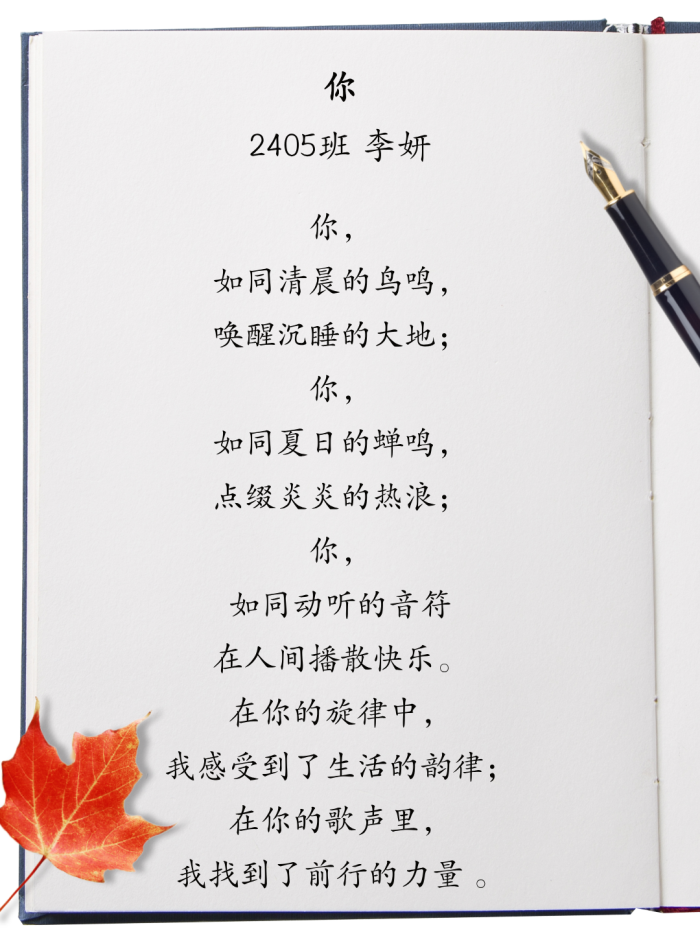 你
2405班 李妍
你，
如同清晨的鸟鸣，
唤醒沉睡的大地；
你，
如同夏日的蝉鸣，
点缀炎炎的热浪；
你，
如同动听的音符
在人间播散快乐。
在你的旋律中，
我感受到了生活的韵律；
在你的歌声里，
我找到了前行的力量。